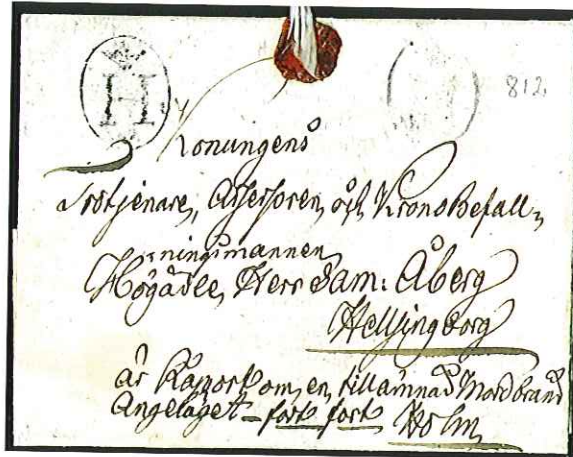 H
812.
Konungens
Trotjenare, Assessoren, och KronoBefall-
ningsmannen
Högädle, Herr Sam: Åberg
Hellsingborg
är Rapport om, en, tillämnad Mordbrand
Angeläget – fort fort Holm